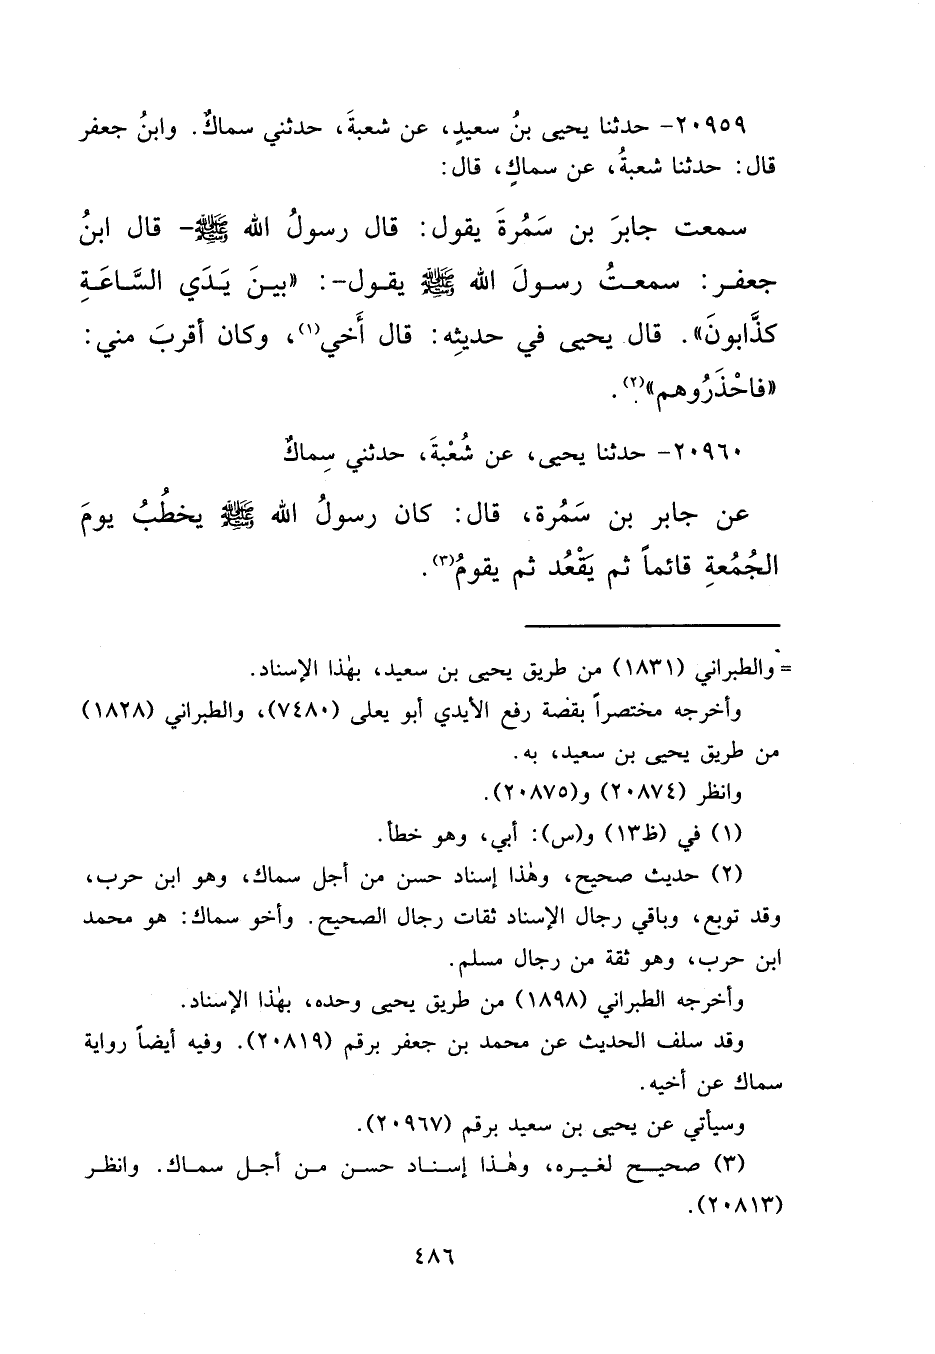 ٢٠٩٥٩- حدثنا يحيى بنُ سعيدٍ، عن شعبةَ، حدثني سماكٌ. وابنُ جعفر
قال: حدثنا شعبةُ، عن سماكٍ، قال:
سمعت جابرَ بن سَمُرةَ يقول: قال رسولُ الله ﷺ- قال ابنُ
جعفر: سمعتُ رسولَ الله ﷺ يقول-: «بينَ يَدَي السَّاعَةِ
كذَّابونَ». قال يحيى في حديثِه: قال أَخي(١)، وكان أقربَ مني:
«فاحْذَرُوهم»(٢).
٢٠٩٦٠- حدثنا يحيى، عن شُعْبةَ، حدثني سِماكٌ
عن جابر بن سَمُرة، قال: كان رسولُ الله ﷺ يخطُبُ يومَ
الجُمُعةِ قائماً ثم يَقْعُد ثم يقومُ(٣).
= والطبراني (١٨٣١) من طريق يحيى بن سعيد، بهٰذا الإسناد.
وأخرجه مختصراً بقصة رفع الأيدي أبو يعلى (٧٤٨٠)، والطبراني (١٨٢٨)
من طريق يحيى بن سعيد، به.
وانظر (٢٠٨٧٤) و(٢٠٨٧٥).
(١) في (ظ١٣) و(س): أبي، وهو خطأ.
(٢) حديث صحيح، وهٰذا إسناد حسن من أجل سماك، وهو ابن حرب،
وقد توبع، وباقي رجال الإسناد ثقات رجال الصحيح. وأخو سماك: هو محمد
ابن حرب، وهو ثقة من رجال مسلم.
وأخرجه الطبراني (١٨٩٨) من طريق يحيى وحده، بهٰذا الإسناد.
وقد سلف الحديث عن محمد بن جعفر برقم (٢٠٨١٩). وفيه أيضاً رواية
سماك عن أخيه.
وسيأتي عن يحيى بن سعيد برقم (٢٠٩٦٧).
(٣) صحيح لغيره، وهٰذا إسناد حسن من أجل سماك. وانظر
(٢٠٨١٣).
٤٨٦